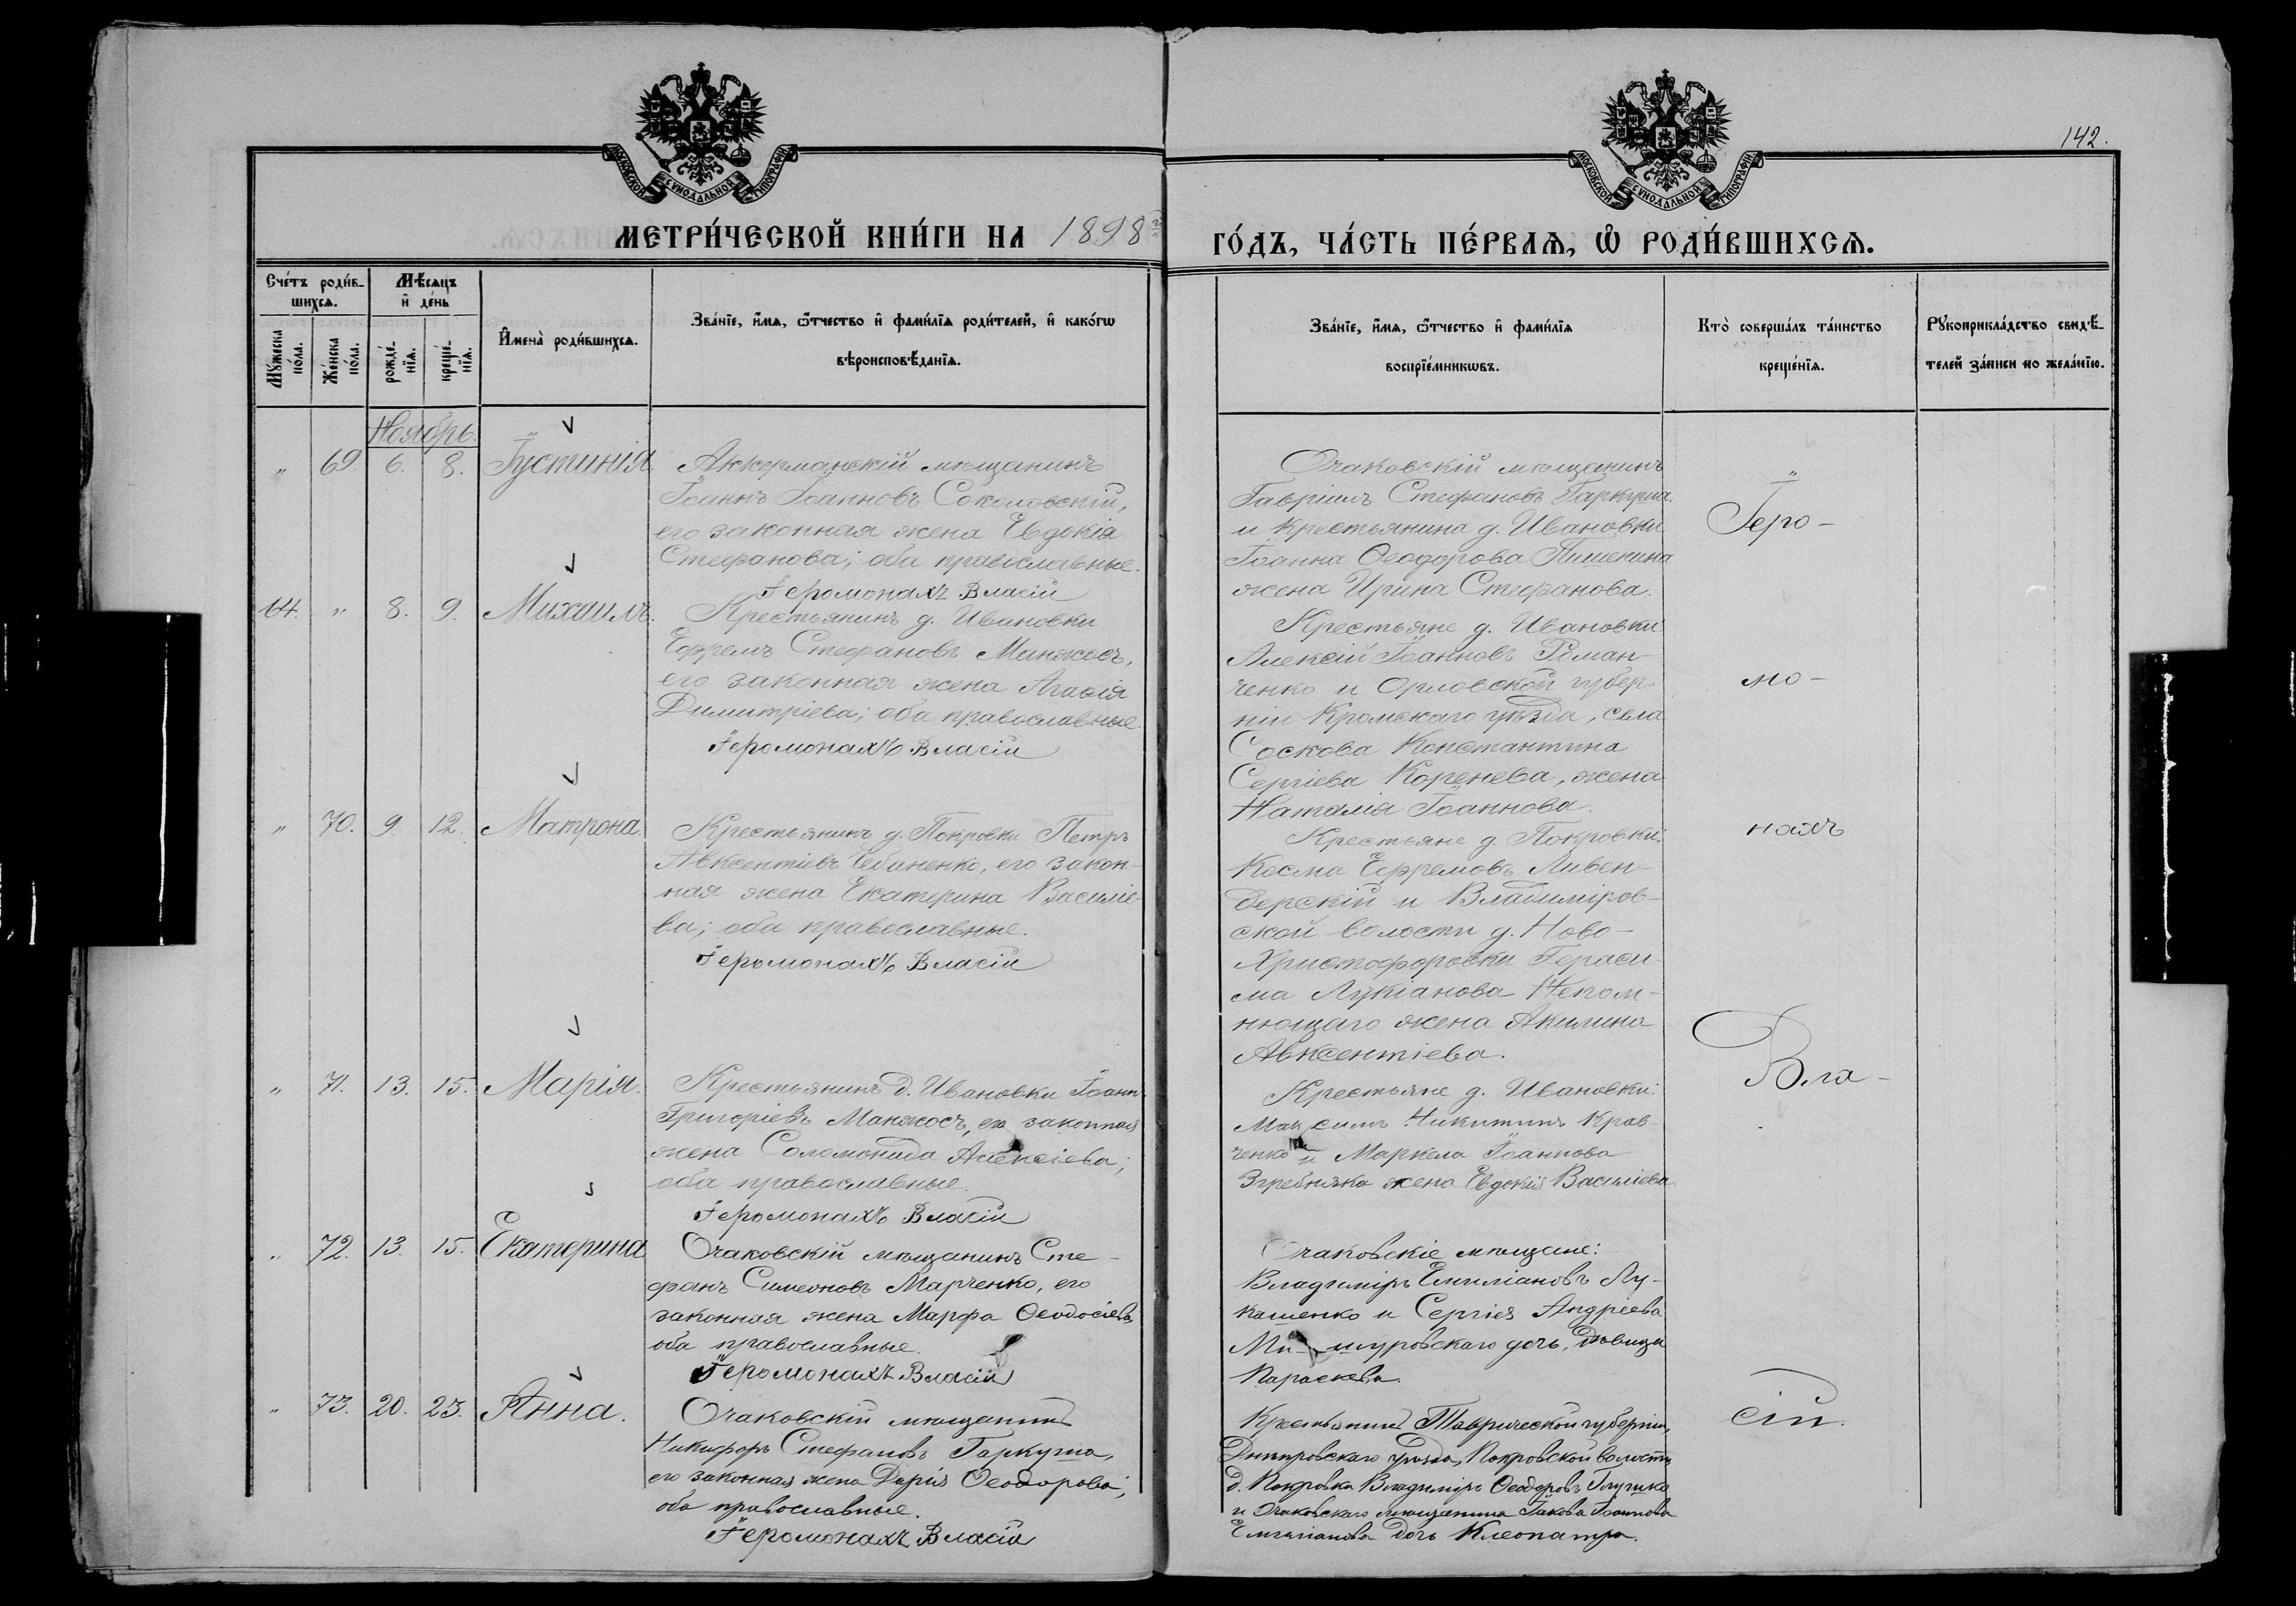 142.
МОСКОВСКОЙ СУНОДАЛЬНОЙ ТИПОГРАФІИ
МОСКОВСКОЙ СУНОДАЛЬНОЙ ТИПОГРАФІИ
МЕТРИ́ЧЕСКОЙ КНИ́ГИ НА 1898 й
ГО́ДЪ, ЧА́СТЬ ПЕ́РВАѦ, Ѡ РОДИ́ВШИХСѦ.
Сче́тъ роди́в-
шихсѧ.
Мꙋ́жеска по́ла.
Же́нска по́ла.
Мѣ́сѧцъ
и҆ де́нь
рожде́-
нїѧ.
креще́-
нїѧ.
И҆мена̀ роди́вшихсѧ.
Зва́нїе, и҆́мѧ, ѻ҆́тчество и҆ фами́лїѧ роди́телей, и҆ како́гѡ
вѣроисповѣ́данїѧ.
Зва́нїе, и҆́мѧ, ѻ҆́тчество и҆ фами́лїѧ
воспрїе́мникѡвъ.
Кто̀ соверша́лъ та́инство
креще́нїѧ.
Рꙋкоприкла́дство свидѣ́-
телей за́писи по жела́нїю.
Ноябрь.
„ 69. 6. 8. Іустинія.
Аккерманскій мѣщанинъ
Іоаннъ Іоанновъ Соколовскій,
его законная жена Евдокія
Стефанова; оба православные.
Іеромонахъ Власій
Очаковскій мѣщанинъ
Гавріилъ Стефановъ Гаркуша
и крестьянина д. Ивановки
Іоанна Ѳеодорова Пишенина
жена Ирина Стефанова.
64. „ 8. 9. Михаилъ.
Крестьянинъ д. Ивановки
Ефремъ Стефановъ Манжосъ,
его законная жена Агаѳія
Димитріева; оба православные.
Іеромонахъ Власій
Крестьяне д. Ивановки:
Алексій Іоанновъ Роман-
ченко и Орловской губер-
ніи Кромскаго уѣзда, села
Соскова Константина
Сергіева Коренева, жена
Наталія Іоаннова.
„ 70. 9. 12. Матрона.
Крестьянинъ д. Покровки Петръ
Авксентіевъ Чебаненко, его закон-
ная жена Екатерина Василіе-
ва; оба православные.
Іеромонахъ Власій
Крестьяне д. Покровки:
Косма Ефремовъ Ливен-
дерскій и Владиміров-
ской волости д. Ново-
Христофоровки Гераси-
ма Лукіанова Непом-
нющаго жена Акилина
Авксентіева.
„ 71. 13. 15. Марія.
Крестьянинъ д. Ивановки Іоаннъ
Григоріевъ Манжосъ, его законная
жена Соломонида Алексіева;
оба православные.
Іеромонахъ Власій
Крестьяне д. Ивановки:
Максимъ Никитинъ Крав-
ченко и Маркела Іоаннова
Згребняка жена Евдокія Василіева.
„ 72. 13. 15. Екатерина
Очаковскій мѣщанинъ Сте-
фанъ Симеоновъ Марченко, его
законная жена Марфа Ѳеодосіева,
оба православные.
Іеромонахъ Власій
Очаковскіе мѣщане:
Владиміръ Емиліановъ Лу-
кашенко и Сергія Андреева
Ми-шуровскаго дочь, дѣвица
Параскева.
„ 73. 20. 23. Анна.
Очаковскій мѣщанинъ
Никифоръ Стефановъ Гаркуша,
его законная жена Дарія Ѳеодорова;
оба православные.
Іеромонахъ Власій
Крестьянинъ Таврической губерніи,
Днѣпровскаго уѣзда, Покровской волости
д. Покровки Владиміръ Ѳеодоровъ
и Очаковскаго мѣщанина Іакова Іоаннова
Емиліанова дочь Клеопатра.
Іеро-
мо-
нахъ
Вла-
сій.